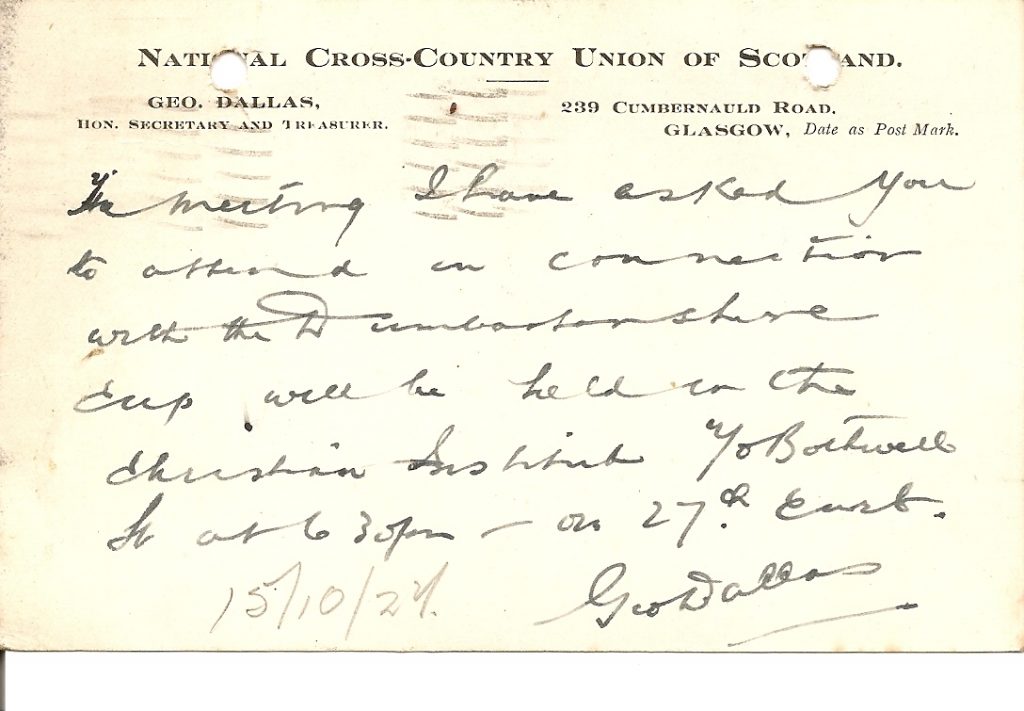 NATIONAL CROSS-COUNTRY UNION OF SCOTLAND.
GEO. DALLAS,
HON. SECRETARY AND TREASURER.
239 CUMBERNAULD ROAD,
GLASGOW, Date as Post Mark.
The meeting I have asked you
to attend in connection
with the Dumbartonshire
Cup will be held in the
Christian Institute Bothwell
St at 6 30pm – on 27th Curt.
Geo Dallas
15/10/24